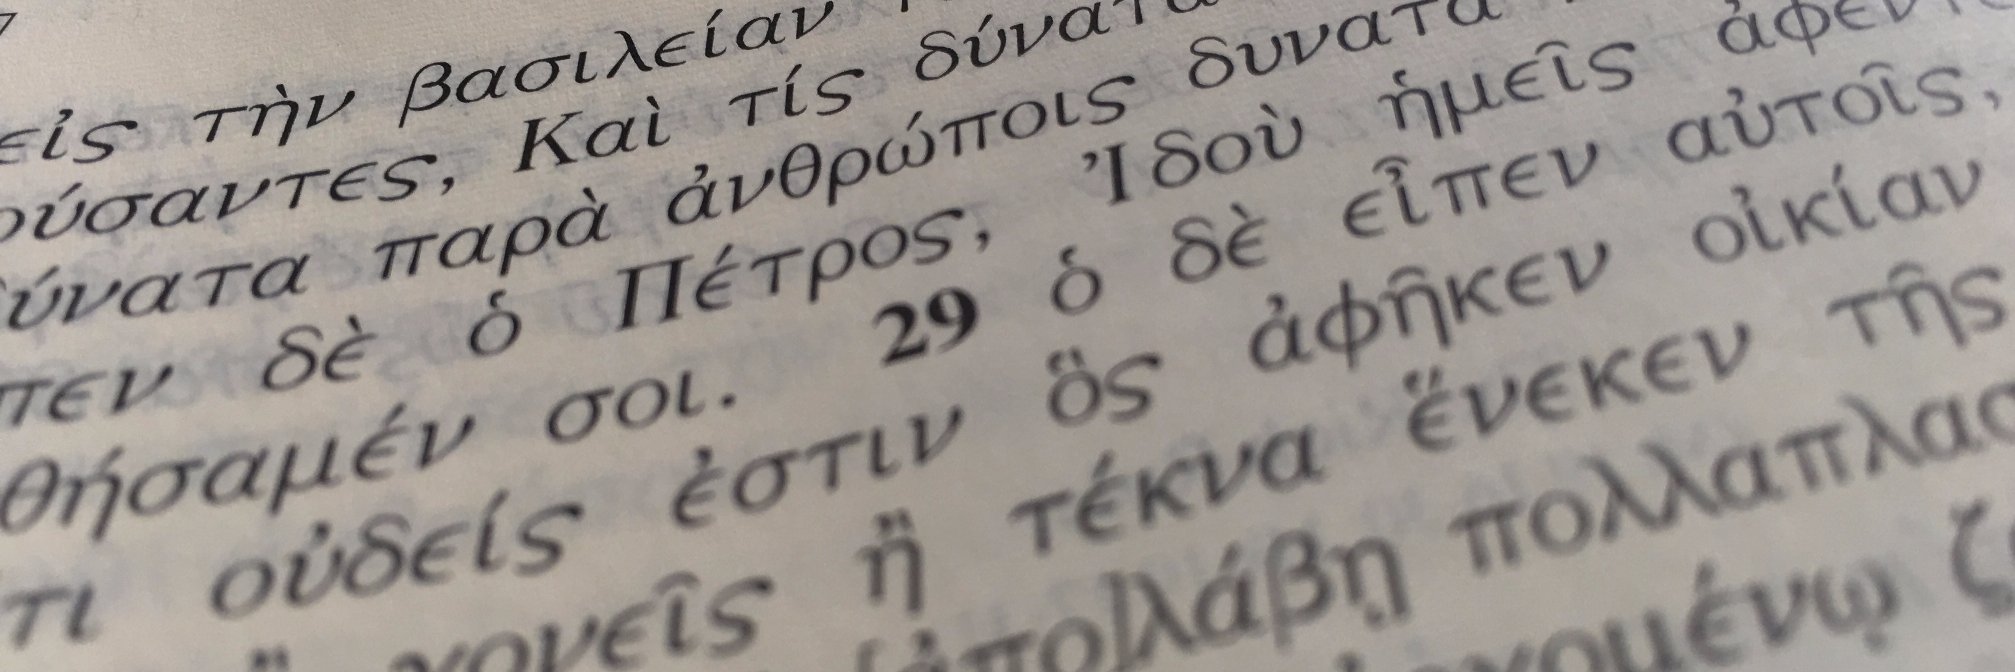 εἰς τὴν βασιλείαν
ούσαντες, Καὶ τίς δύνατα
ύνατα παρὰ ἀνθρώποις δυνατὰ
πεν δὲ ὁ Πέτρος, Ἰδοὺ ἡμεῖς ἀφέντε
θήσαμέν σοι. 29 ὁ δὲ εἶπεν αὐτοῖς,
τι οὐδείς ἐστιν ὃς ἀφῆκεν οἰκίαν
γονεῖς ἢ τέκνα ἕνεκεν τῆς
[ἀπο]λάβῃ πολλαπλασ
χομένῳ